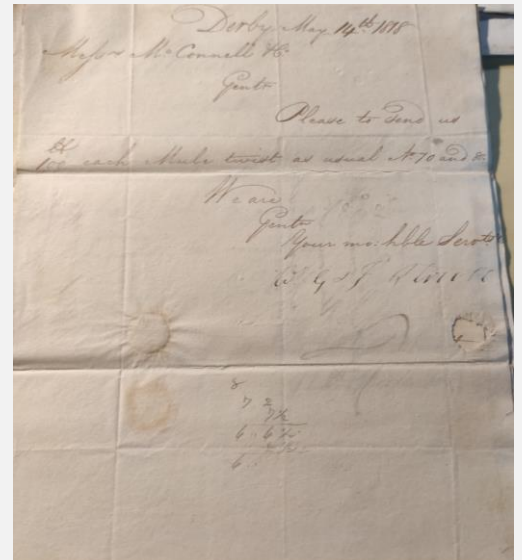 Derby May 14th 1818
Messrs McConnell & Co
Gents
Please to Send us
lbs
100 each Mule twist as usual No 70 and 8
We are
Gents
Your mo. hble Servts
W G & J
8
7 2
7 1/2
6 .. 6 1/2
6 ..